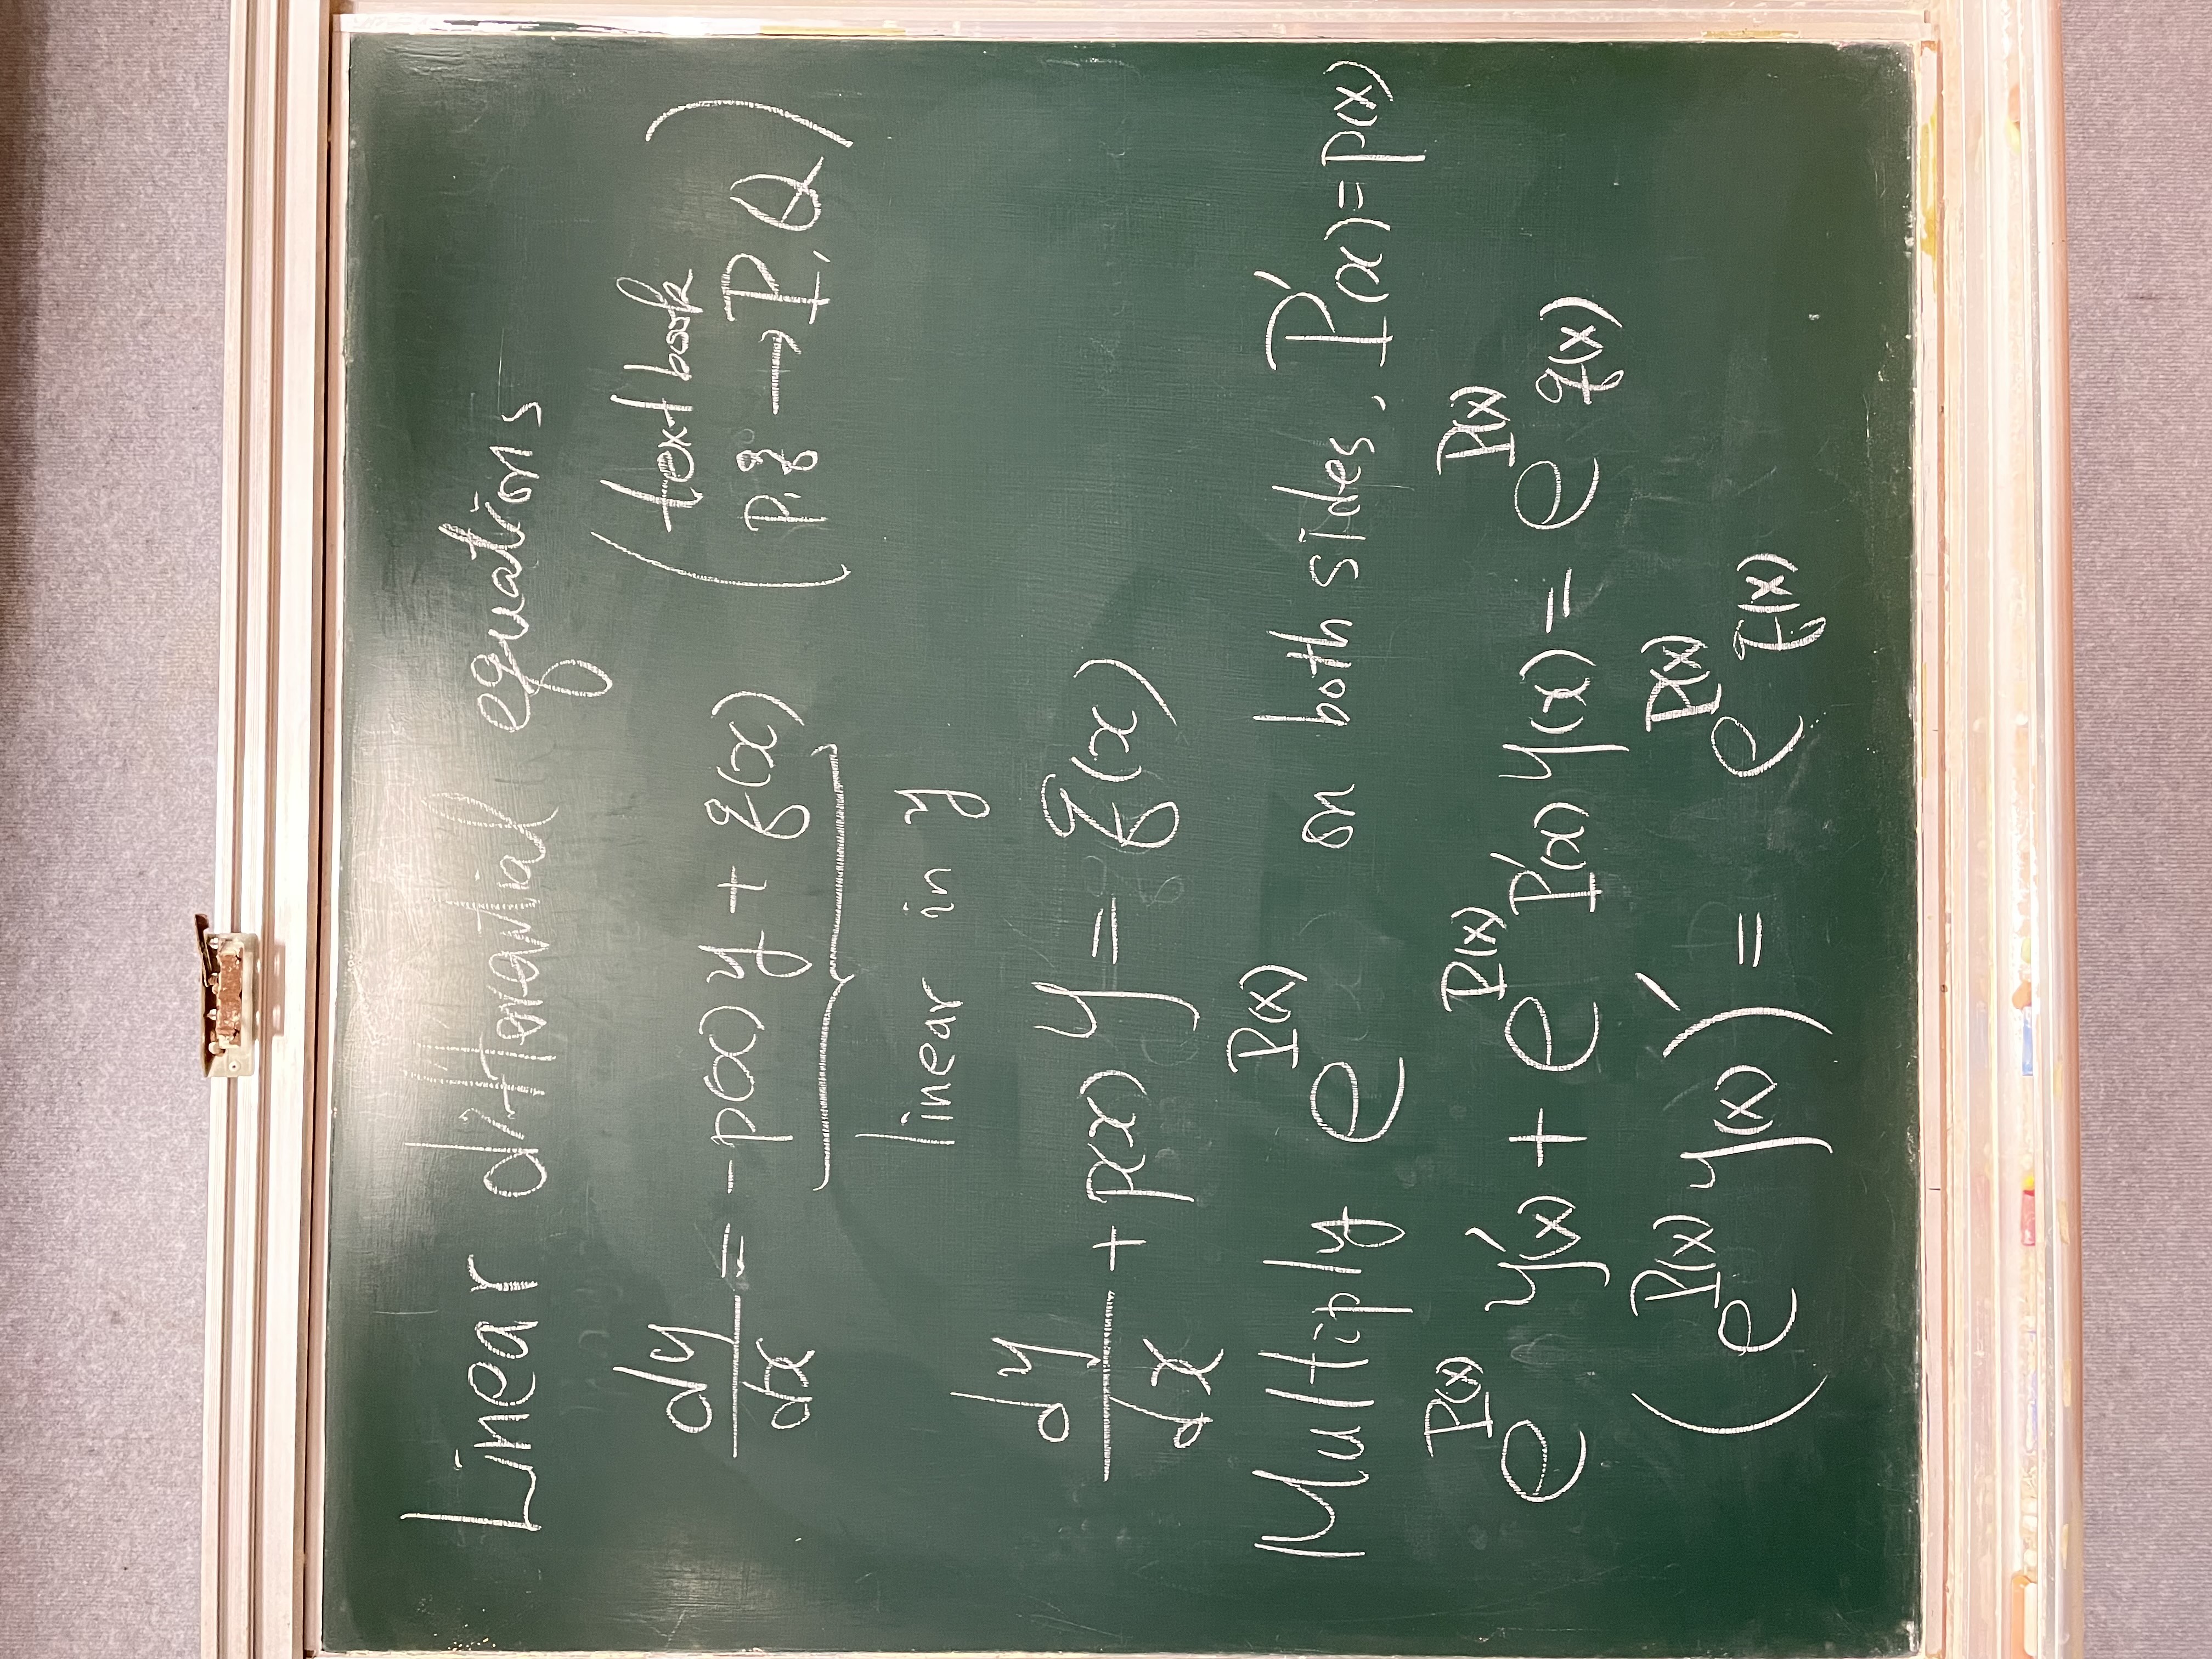 Linear differential equations
dy/dx = -p(x) y + q(x) (text book
p, q → P, Q)
linear in y
dy/dx + p(x) y = q(x)
Multiply e^P(x) on both sides, P'(x) = p(x)
e^P(x) y'(x) + e^P(x) P'(x) y(x) = e^P(x) q(x)
(e^P(x) y(x))' = e^P(x) q(x)